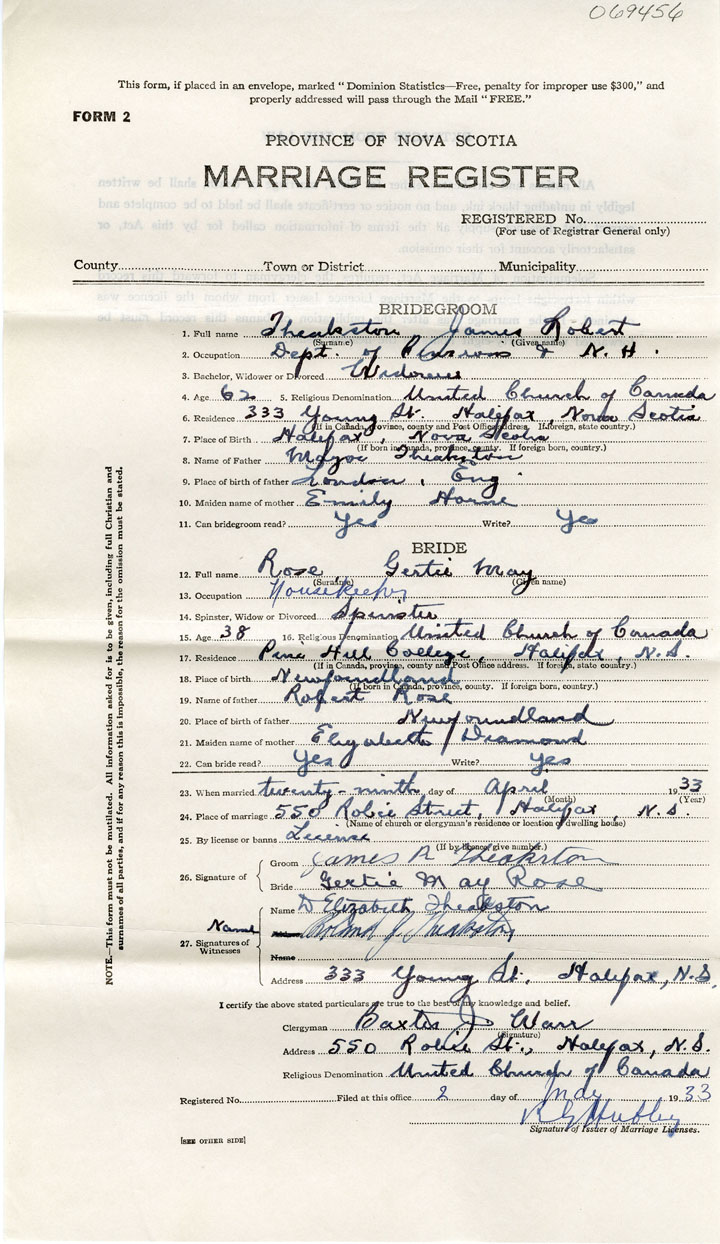 069456
This form, if placed in an envelope, marked “Dominion Statistics—Free, penalty for improper use $300,” and
properly addressed will pass through the Mail “FREE.”
FORM 2
PROVINCE OF NOVA SCOTIA
MARRIAGE REGISTER
REGISTERED No.
(For use of Registrar General only)
County Town or District Municipality
BRIDEGROOM
1. Full name Theakston James Robert
(Surname) (Given name)
2. Occupation Dept. of Pensions & N. H.
3. Bachelor, Widower or Divorced Widower
4. Age 62 5. Religious Denomination United Church of Canada
6. Residence 333 Young St. Halifax, Nova Scotia
(If in Canada, province, county and Post Office address. If foreign, state country.)
7. Place of Birth Halifax, Nova Scotia
(If born in Canada, province, county. If foreign born, country.)
8. Name of Father Major Theakston
9. Place of birth of father London, Eng
10. Maiden name of mother Emily Horne
11. Can bridegroom read? Yes Write? Yes
BRIDE
12. Full name Rose Gertie May
(Surname) (Given name)
13. Occupation Housekeeper
14. Spinster, Widow or Divorced Spinster
15. Age 38 16. Religious Denomination United Church of Canada
17. Residence Pine Hill College, Halifax, N.S.
(If in Canada, province, county and Post Office address. If foreign, state country.)
18. Place of birth Newfoundland
(If born in Canada, province, county. If foreign born, country.)
19. Name of father Robert Rose
20. Place of birth of father Newfoundland
21. Maiden name of mother Elizabeth Diamond
22. Can bride read? Yes Write? Yes
23. When married twenty-ninth day of April 1933
(Month) (Year)
24. Place of marriage 550 Robie Street, Halifax, N.S.
(Name of church or clergyman's residence or location of dwelling house)
25. By license or banns License
(If by license, give number.)
26. Signature of Groom James R Theakston
Bride Gertie May Rose
27. Signatures of Witnesses Name D Elizabeth Theakston
Name Roland J Theakston
Name
Address 333 Young St., Halifax, N.S.
I certify the above stated particulars are true to the best of my knowledge and belief.
Clergyman Baxter J Warr
(Signature)
Address 550 Robie St., Halifax, N.S.
Religious Denomination United Church of Canada
Registered No. Filed at this office 2 day of May 1933
Signature of Issuer of Marriage Licenses.
[SEE OTHER SIDE]
NOTE.—This form must not be mutilated. All information asked for is to be given, including full Christian and
surnames of all parties, and if for any reason this is impossible, the reason for the omission must be stated.